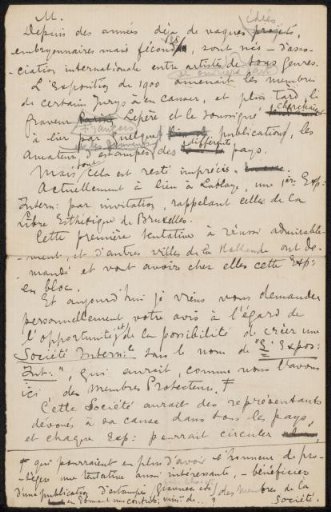 M.
Depuis des années déja de vagues projets,
embryonnaires mais féconds, sont nés - d'asso-
ciation internationale entre artistes de tous genres.
L'Exposition de 1900 amenait les membres
de certain Jurys à en causer, et plus tard le
graveur Lepère et le soussigné cherchaient
à lier par quelques publications, les
Amateurs d'estampes des différents pays.
Mais cela est resté imprécis.
Actuellement à lieu à Lahaye, une 1ère Exp.
Intern: par invitation, rappelant celles de la
Libre Esthétique de Bruxelles.
Cette première tentative à réussi admirable-
ment, et d'autres villes de la Hollande ont de-
mandé et vont avoir chez elles cette Exp:
en bloc.
Et aujourd'hui je viens vous demander
personnellement votre avis à l'égard de
l'opportunité et de la possibilité de créer une
Société Internle sous le nom de "L'Expos:
Int:", qui aurait, comme nous l'avons
ici des membres Protecteurs. +
Cette Société aurait des représentants
dévoués à sa cause dans tous les pays,
et chaque Exp: pourrait circuler
+ qui pourraient en plus d'avoir l'honneur de pro-
téger une tentative aussi intéressante, - bénéficier
d'une publication d'estampes des membres de la
Société.